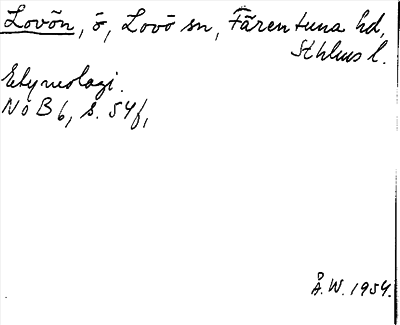 Lovön, ö, Lovö sn, Färentuna hd,
Sthlms l.
Etymologi.
NoB 6, s. 54f,
Å.W. 1954.